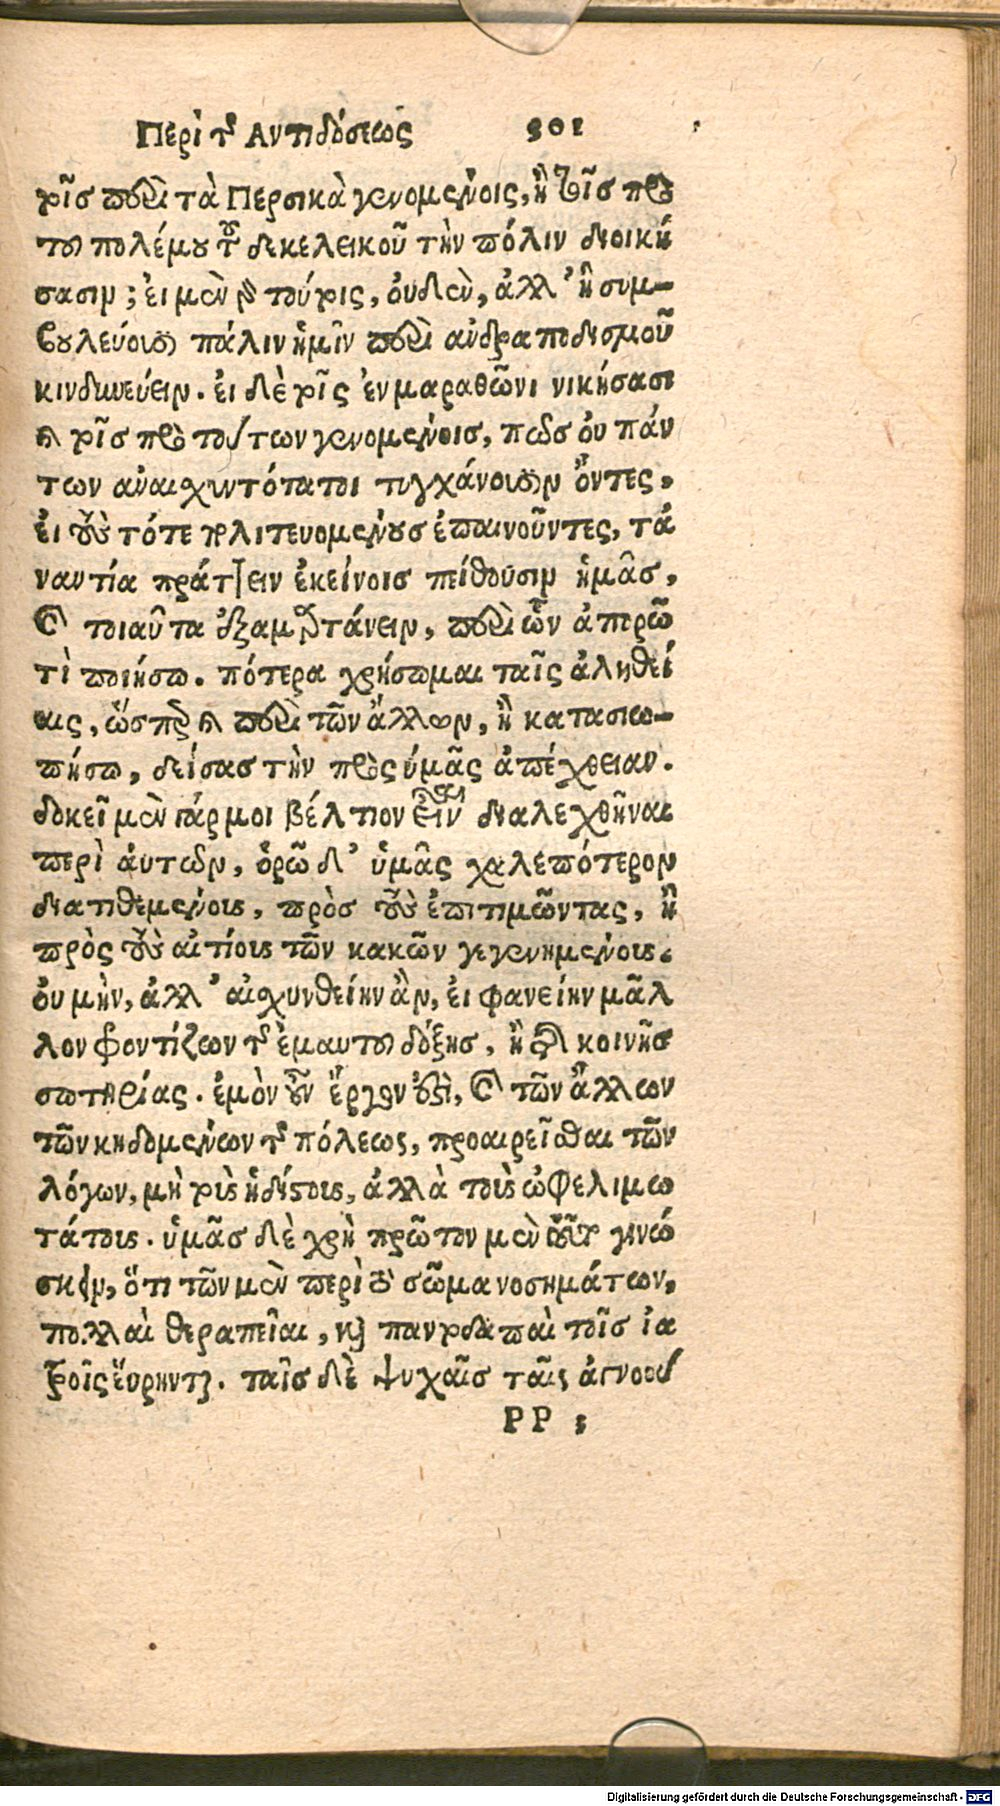 Περὶ τῆς Ἀντιδόσεως 501
τοῖς περὶ τὰ Περσικὰ γενομένοις, ἢ τοῖς πρὸ
τοῦ πολέμου τοῦ δεκελεικοῦ τὴν πόλιν διοική
σασιν; εἰ μὲν γὰρ τούτοις, οὐδὲν, ἀλλ' ἢ συμ-
βουλεύουσι πάλιν ἡμῖν περὶ ἀνδραποδισμοῦ
κινδυνεύειν. εἰ δὲ τοῖς ἐν μαραθῶνι νικήσασι
καὶ τοῖς πρὸ τούτων γενομένοις, πῶς οὐ πάν
των ἀναισχυντότατοι τυγχάνουσιν ὄντες,
εἰ τοὺς τότε πολιτευομένους ἐπαινοῦντες, τἀ
ναντία πράττειν ἐκείνοις πείθουσιν ἡμᾶς,
καὶ τοιαῦτα ἐξαμαρτάνειν, περὶ ὧν ἀπορῶ
τὶ ποιήσω. πότερα χρήσωμαι ταῖς ἀληθεί
αις, ὥσπερ καὶ περὶ τῶν ἄλλων, ἢ κατασιω-
πήσω, δείσας τὴν πρὸς ὑμᾶς ἀπέχθειαν.
δοκεῖ μὲν γάρ μοι βέλτιον εἶναι διαλεχθῆναι
περὶ αὐτῶν, ὁρῶ δ' ὑμᾶς χαλεπότερον
διατιθεμένους, πρὸς τοὺς ἐπιτιμῶντας, ἢ
πρὸς τοὺς αἰτίους τῶν κακῶν γεγενημένους.
οὐ μὴν, ἀλλ' αἰσχυνθείην ἂν, εἰ φανείην μᾶλ
λον φροντίζων τῆς ἐμαυτοῦ δόξης, ἢ τῆς κοινῆς
σωτηρίας. ἐμὸν οὖν ἔργον ἐστὶ, καὶ τῶν ἄλλων
τῶν κηδομένων τῆς πόλεως, προαιρεῖσθαι τῶν
λόγων, μὴ τοὺς ἡδίστους, ἀλλὰ τοὺς ὠφελιμω
τάτους. ὑμᾶς δὲ χρὴ πρῶτον μὲν τοῦτο γινώ
σκειν, ὅτι τῶν μὲν περὶ τὸ σῶμα νοσημάτων,
πολλαὶ θεραπεῖαι, καὶ παντοδαπαὶ τοῖς ἰα
τροῖς εὕρηνται. ταῖς δὲ ψυχαῖς ταῖς ἀγνοού
PP 3
Digitalisierung gefördert durch die Deutsche Forschungsgemeinschaft - DFG